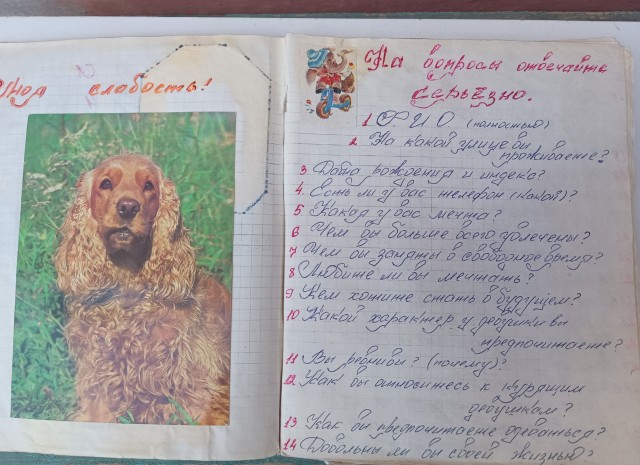 Моя слабость!
На вопросы отвечайте
серьёзно.
1 Ф И О (полностью)
2 На какой улице вы
проживаете?
3 Дата рождения и индекс?
4. Есть ли у вас телефон (какой)?
5 Какая у вас мечта?
6 Чем вы больше всего увлечены?
7 Чем вы заняты в свободное время?
8 Любите ли вы мечтать?
9 Кем хотите стать в будущем?
10 Какой характер у девушки вы
предпочитаете?
11 Вы ревнивы? (почему)?
12 Как вы относитесь к курящим
девушкам?
13 Как вы предпочитаете одеваться?
14 Довольны ли вы своей жизнью?